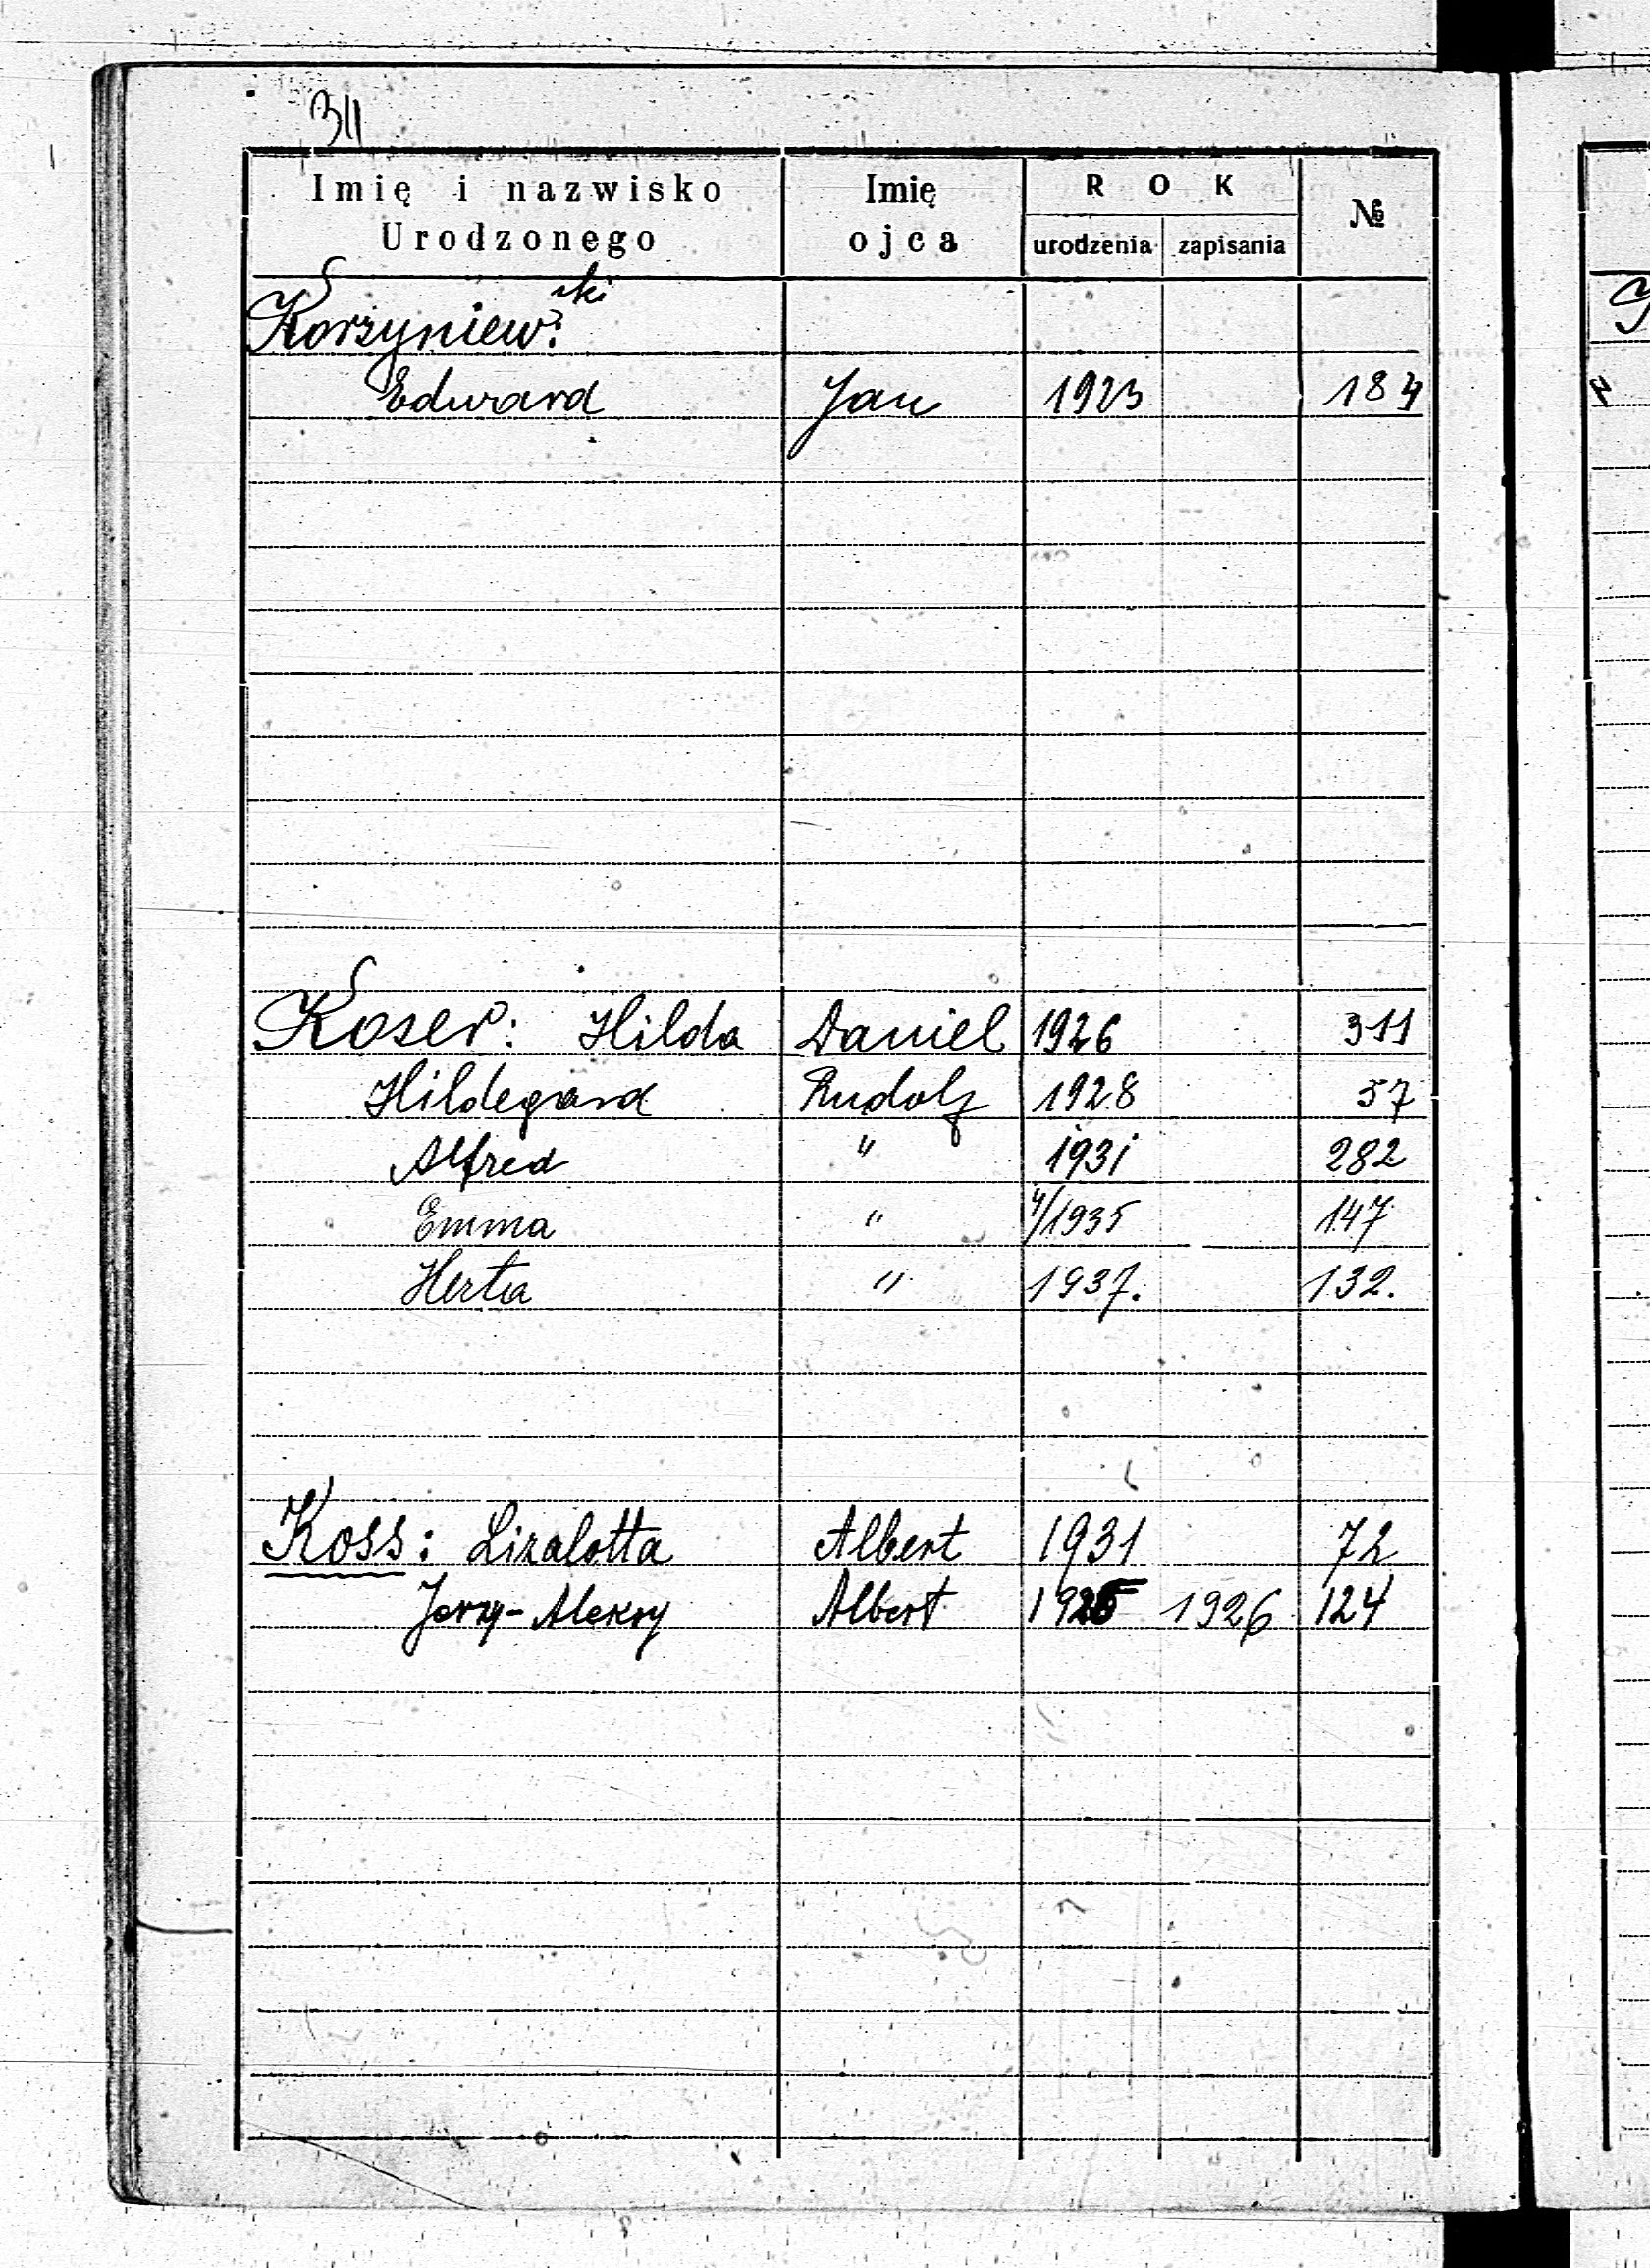 311
Imię i nazwisko Urodzonego Imię ojca ROK urodzenia zapisania №
Korzyniewski:
Edward Jan 1923 184
Koser: Hilda Daniel 1926 311
Hildegard Rudolf 1928 57
Alfred " 1931 282
Emma " 4/1935 147
Herta " 1937. 132.
Koss: Lizalotta Albert 1931 72
Jerzy-Aleksy Albert 1925 1926 124